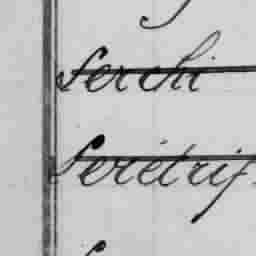 Serchi
Serétrif